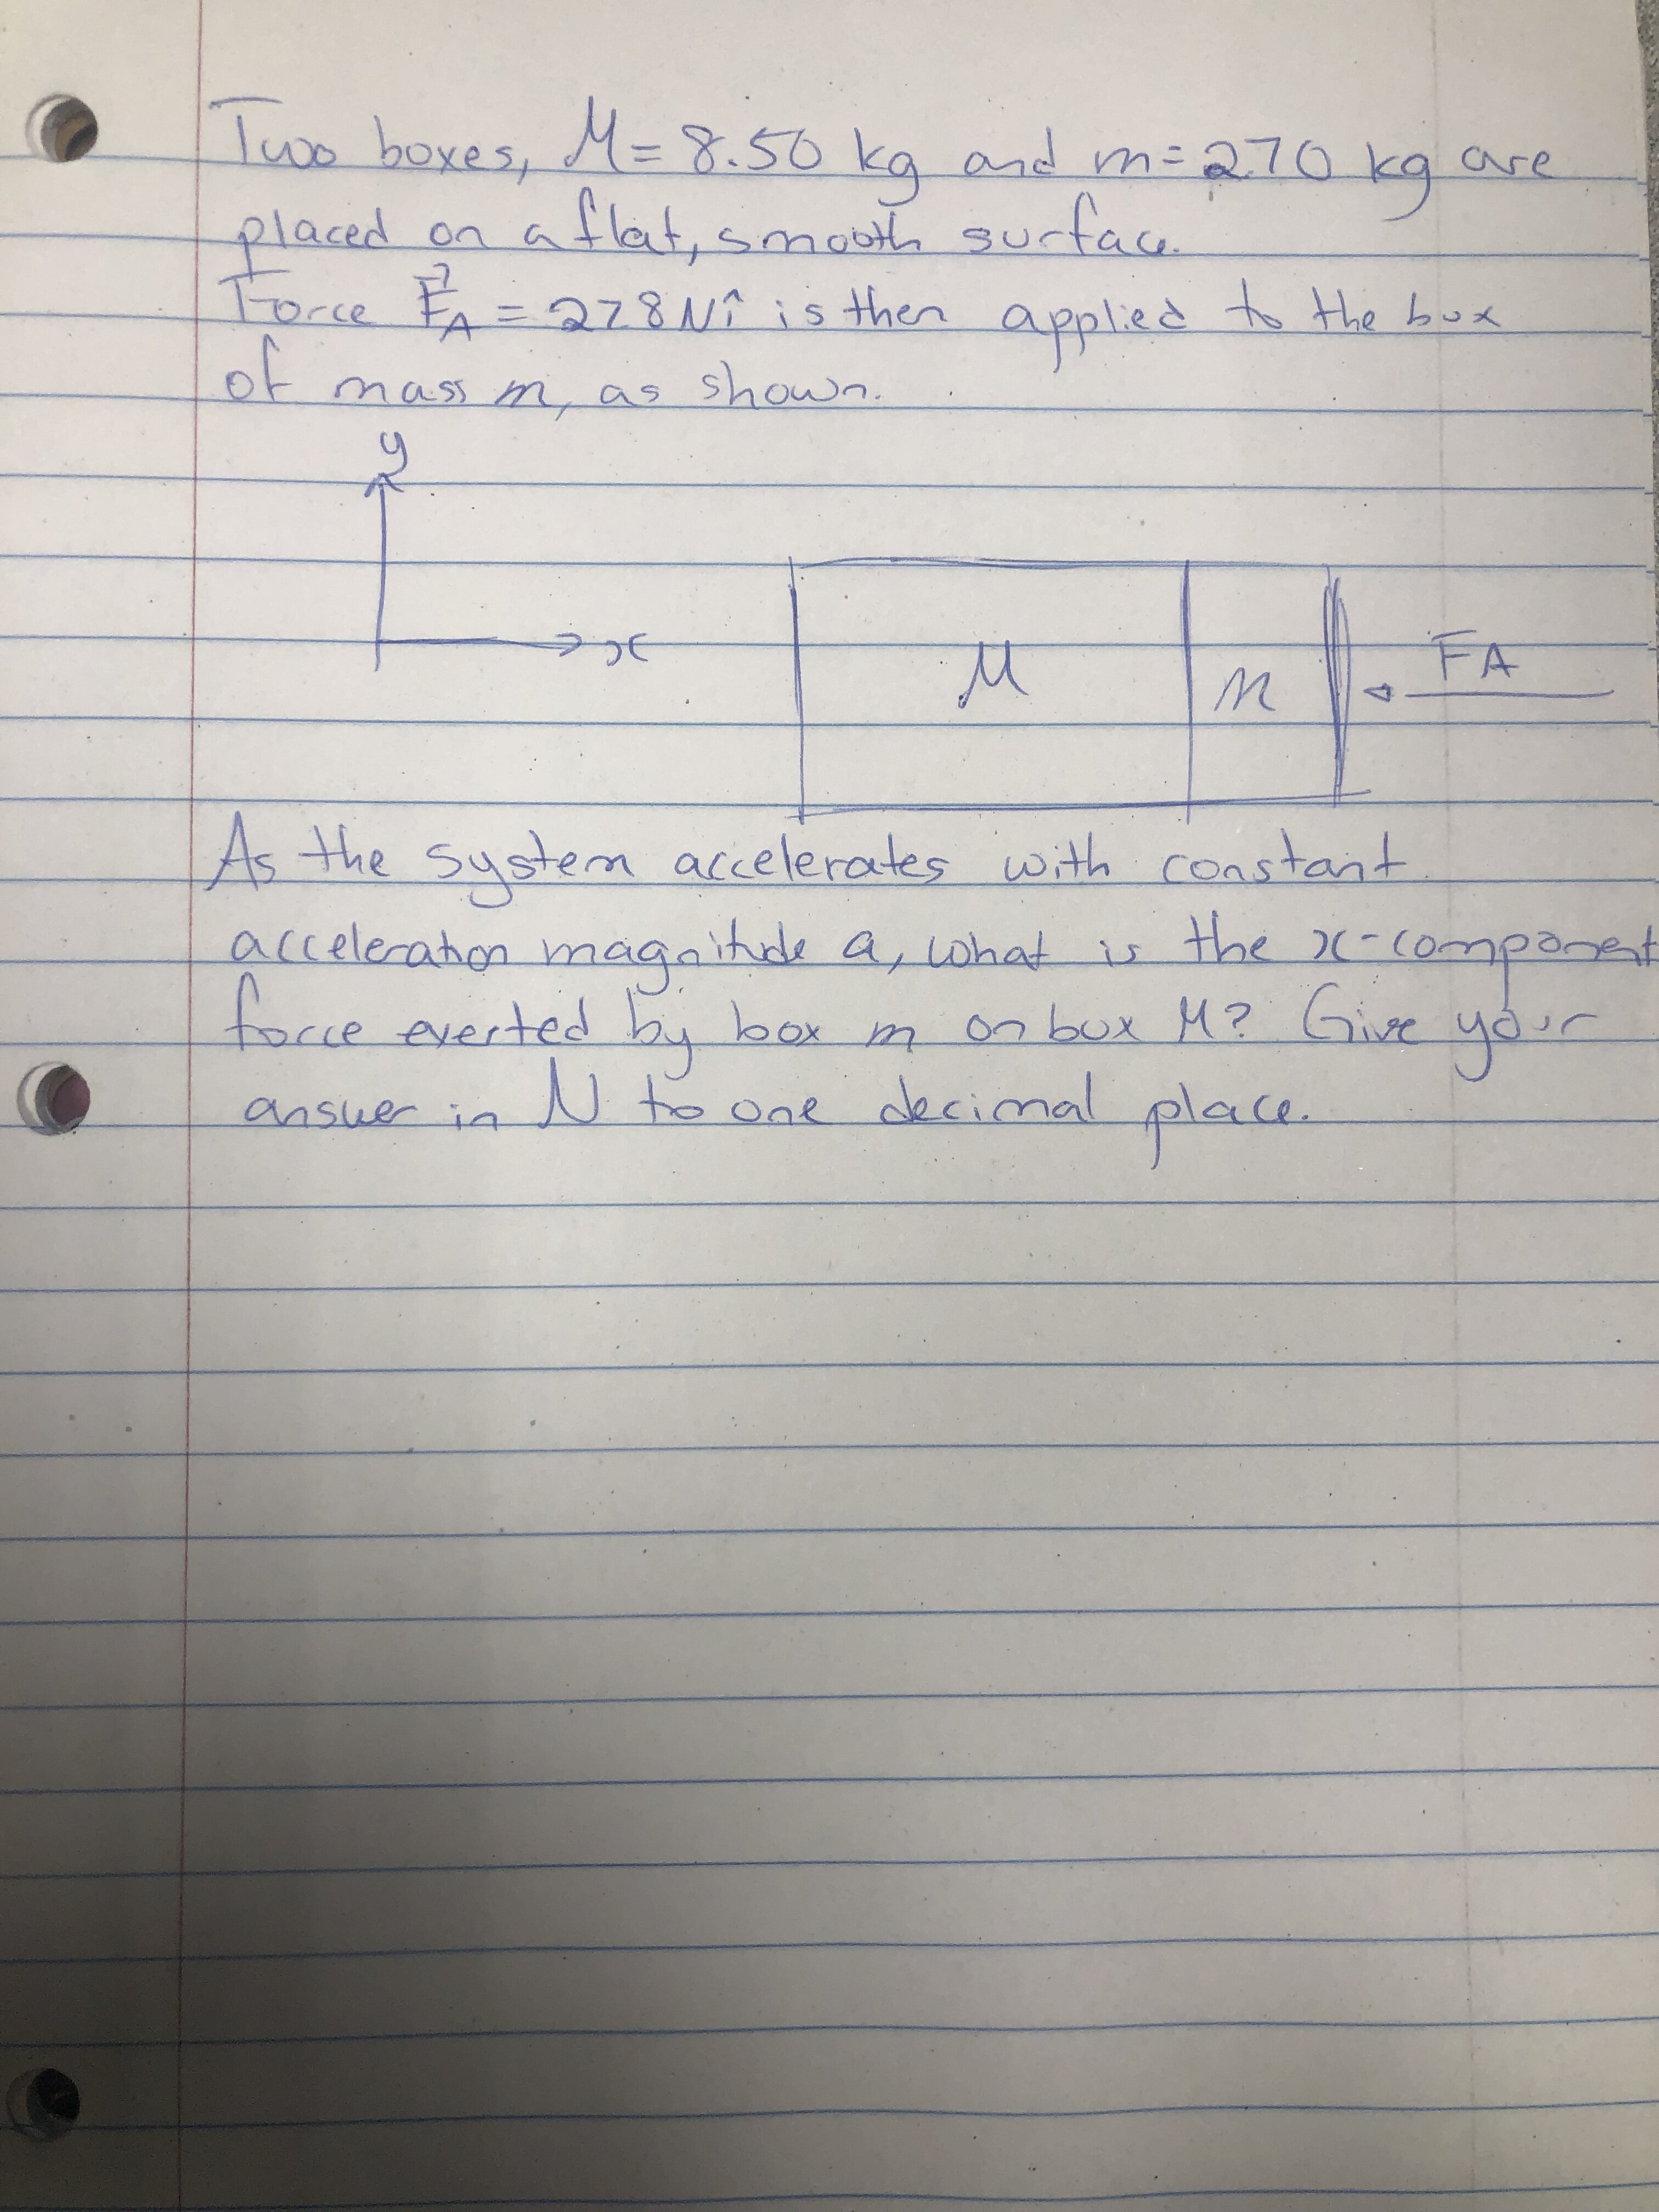 Two boxes, M = 8.50 kg and m = 2.70 kg are
placed on a flat, smooth surface.
Force F⃗A = 278 N î is then applied to the box
of mass m, as shown.
y
x
M
m
FA
As the system accelerates with constant
acceleration magnitude a, what is the x-component
force exerted by box m on box M? Give your
answer in N to one decimal place.